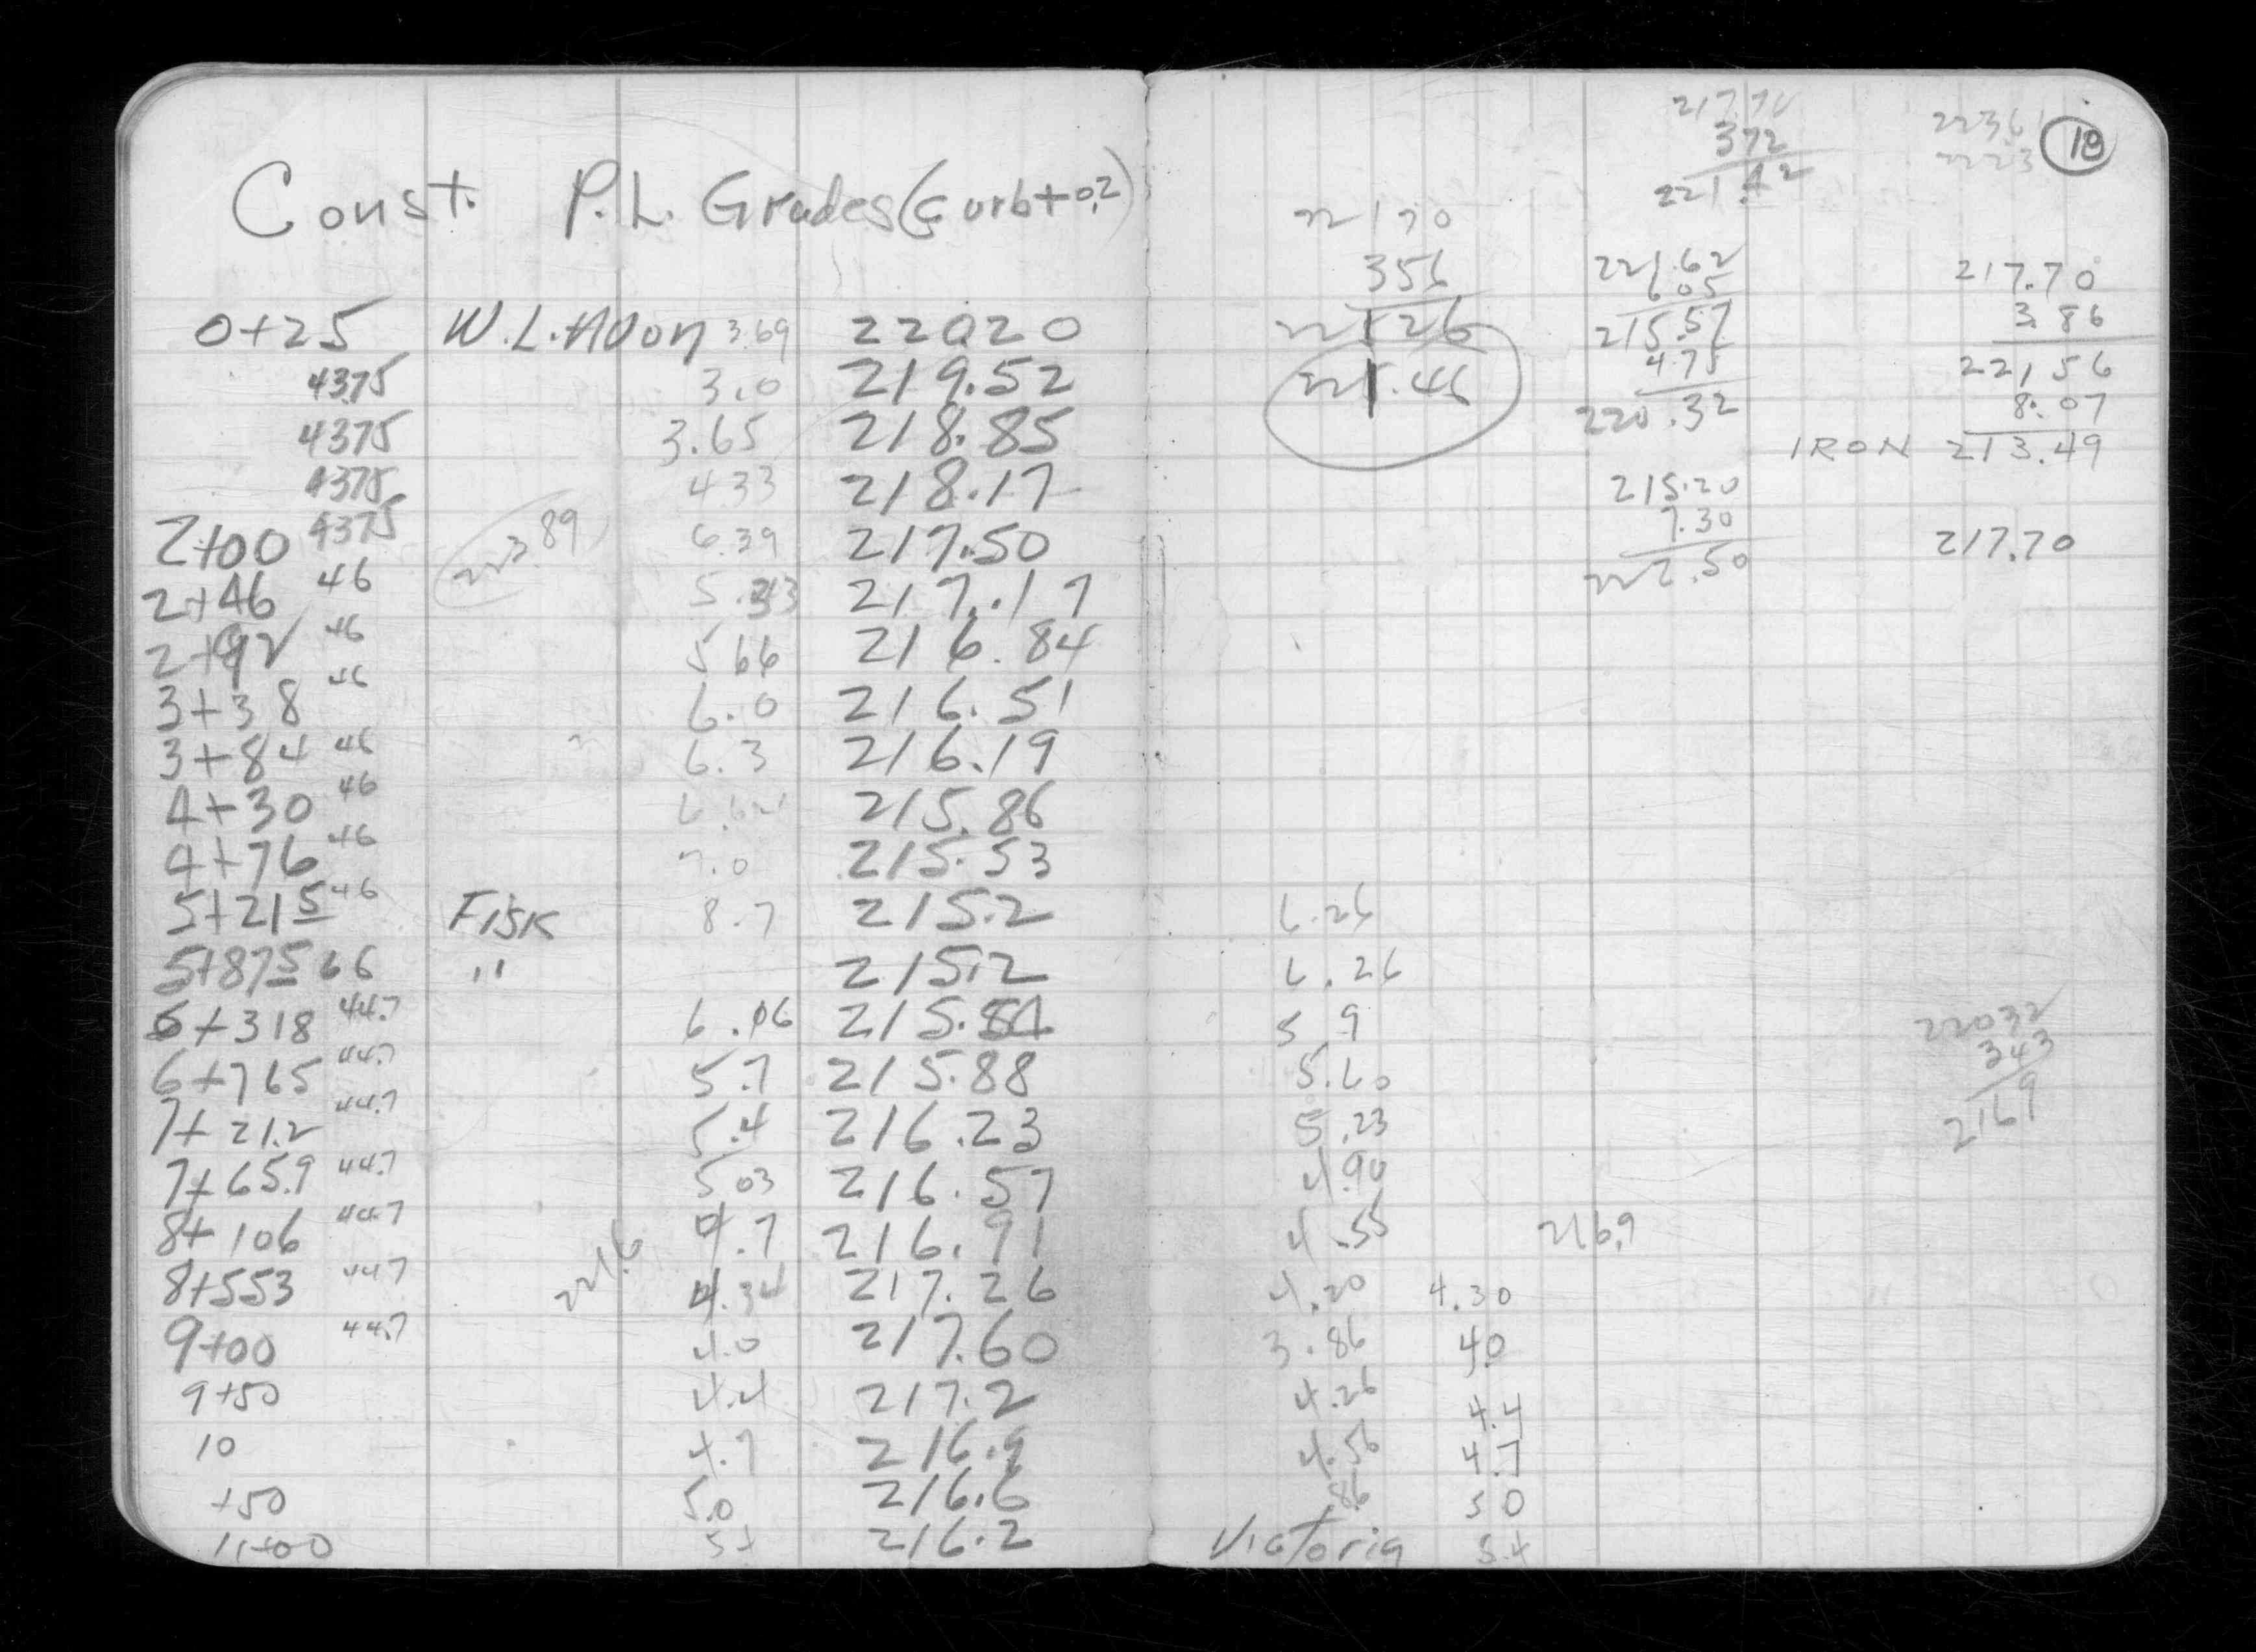 Const. P.L. Grades (curb+0.2)
0+25 W.L. Aldon 3.69 220.20
4375 3.0 219.52
4375 3.65 218.85
4375 4.33 218.17
2+00 4375 223.89 6.39 217.50
2+46 46 217.17
2+92 46 5 66 216.84
3+38 46 6.0 216.51
3+84 46 6.3 216.19
4+30 46 215.86
4+76 46 7.0 215.53
5+215 46 Fisk 8.7 215.2
5+875 66 " 215.2
6+318 44.7 6.06 215.54
6+765 44.7 5.7 215.88
7+21.2 44.7 5.4 216.23
7+65.9 44.7 5 03 216.57
8+106 44.7 4.7 216.91
8+553 447 221.6 4.34 217.26
9+00 44.7 4.0 217.60
9+50 4.4 217.2
10 4.7 216.9
+50 5.0 216.6
11+00 216.2
18
217.70
372
221.42
2236
2223
221 70
356
221 26
221.46
221.62
6 05
215.57
4.75
220.32
215.20
7.30
222.50
217.70
3.86
221 56
8.07
IRON 213.49
217.70
6.26
6.26
5 9
5.60
5.23
4.90
4.55 216.9
4.20 4.30
3.86 4.0
4.26 4.4
4.56 4.7
.86 5 0
Victoria 5.4
22032
343
2169